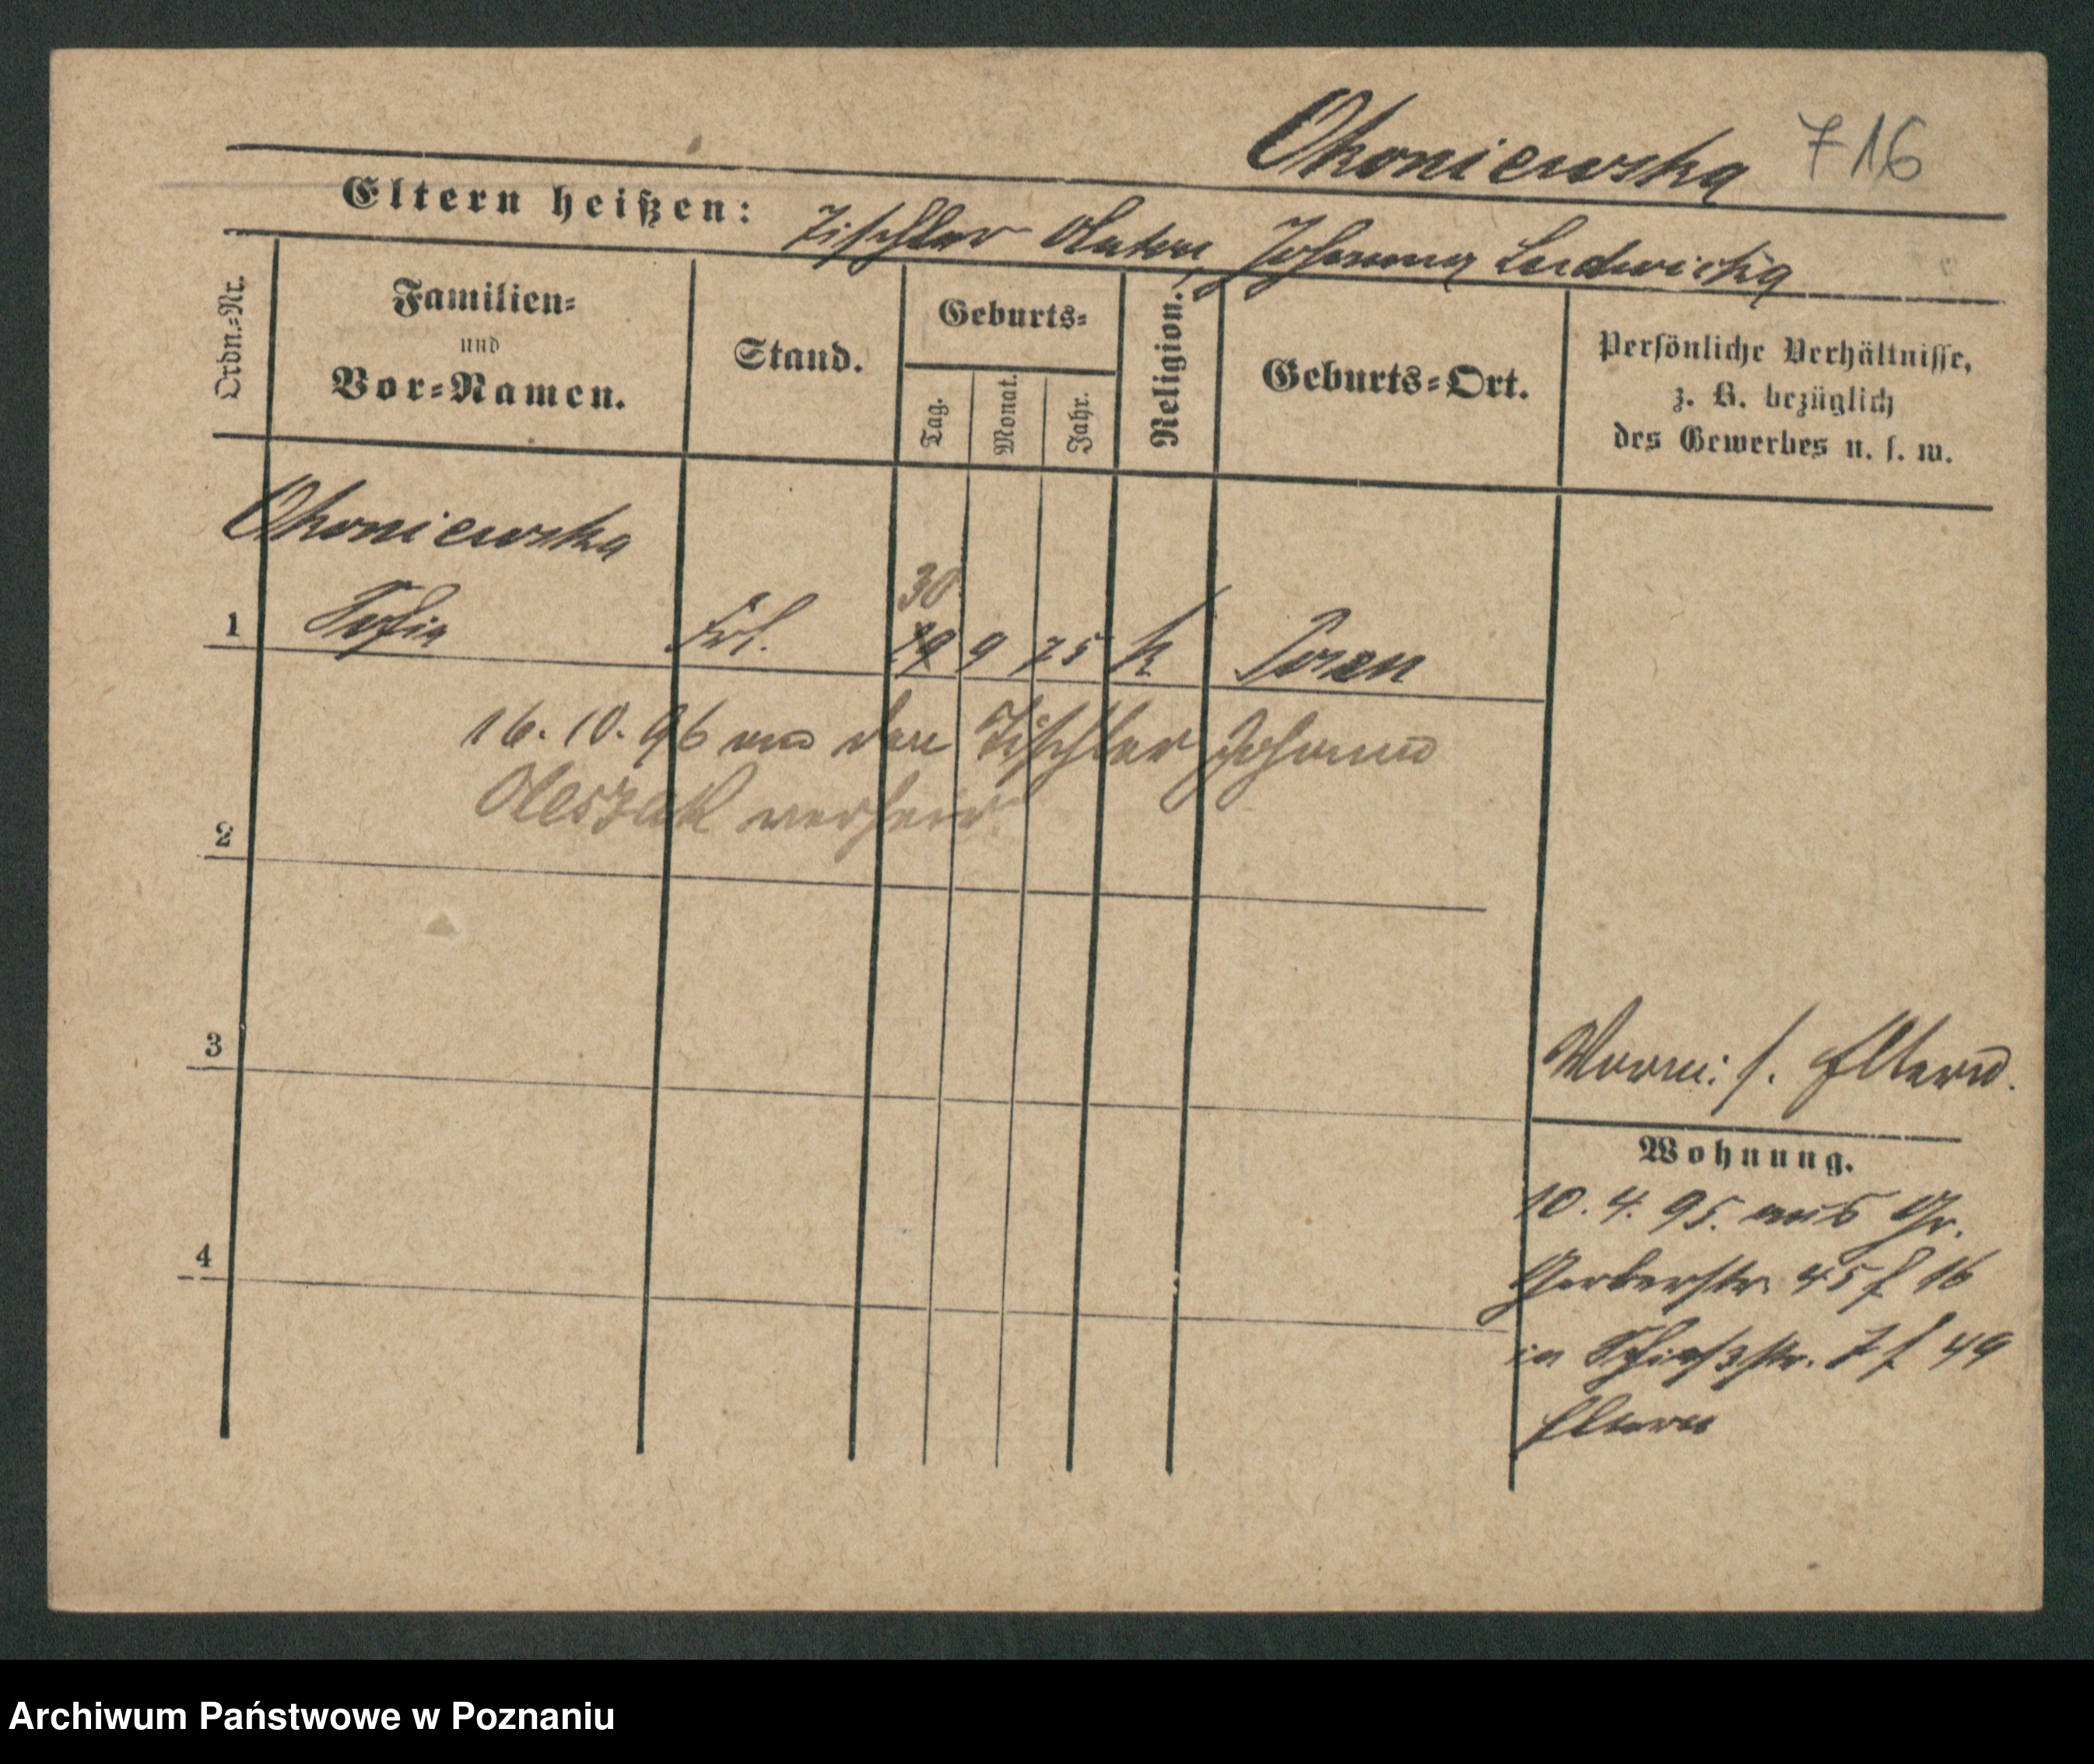 Okoniewska 716
Eltern heißen: Tischler Anton, Johanna Ludwicka
Ordn.=Nr.
Familien=
und
Vor=Namen.
Stand.
Geburts=
Tag.
Monat.
Jahr.
Religion.
Geburts=Ort.
Persönliche Verhältnisse,
z. B. bezüglich
des Gewerbes u. s. w.
Okoniewska
30.
1 Sofia Frl. 29 9 75 k Posen
16. 10. 96 an den Tischler Johann
Oleszak verheir.
2
3
4
Vorm: s. Eltern.
Wohnung.
10. 4. 95. aus Gr.
Gerberstr. 45 f 16
in Schießstr. 7 f 49
Eltern
Archiwum Państwowe w Poznaniu